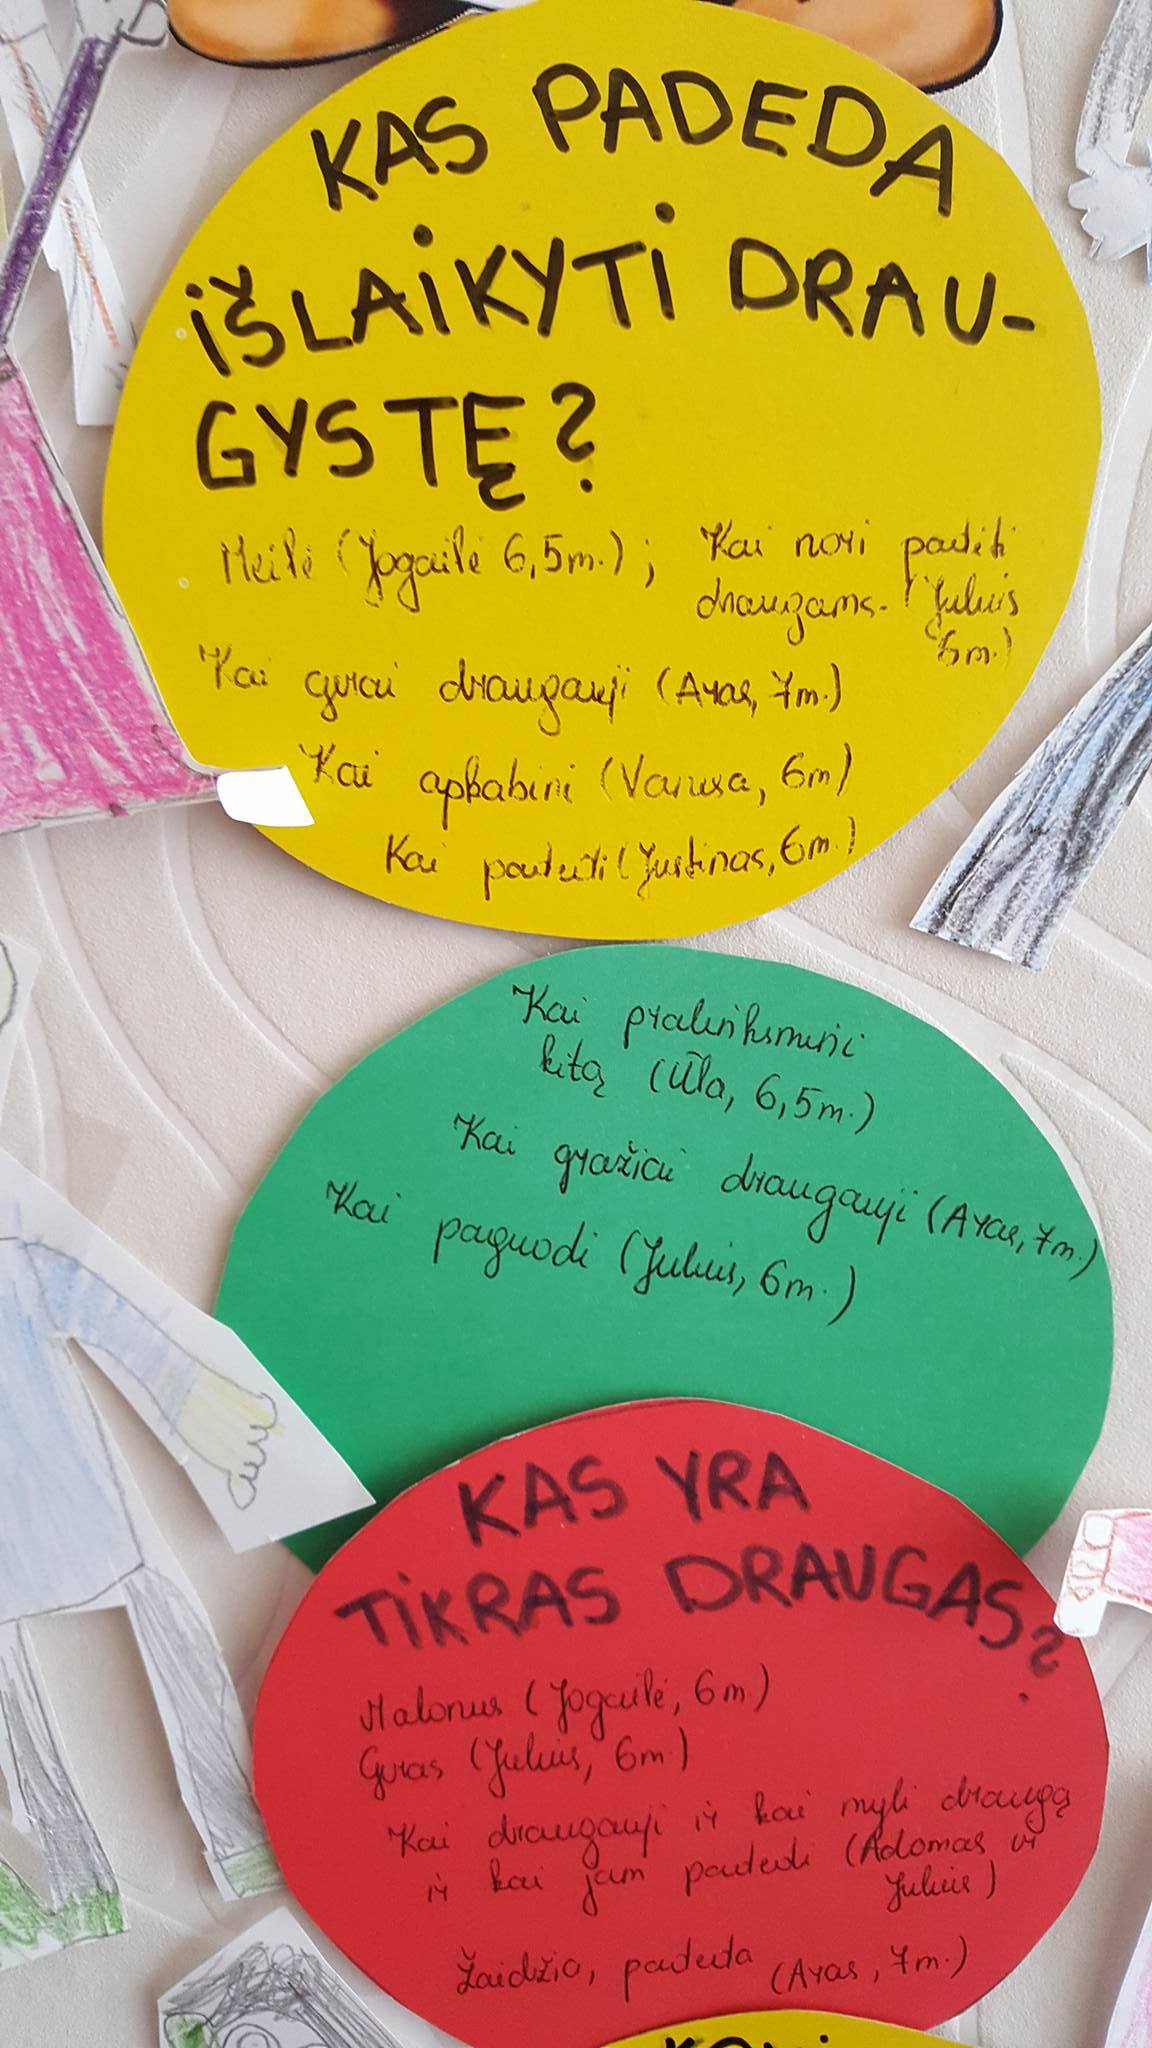 KAS PADEDA
IŠLAIKYTI DRAU-
GYSTĘ?
Meilė (Jogailė 6,5m.); Kai nori padėti
draugams. (Julius
6m.)
Kai gerai draugauji (Aras, 7m.)
Kai apkabini (Vanesa, 6m)
Kai padedi (Justinas, 6m.)
Kai pralinksmini
kitą (Ūla, 6,5m.)
Kai gražiai draugauji (Aras, 7m.)
Kai paguodi (Julius, 6m.)
KAS YRA
TIKRAS DRAUGAS?
Malonus (Jogailė, 6m.)
Geras (Julius, 6m.)
Kai draugauji ir kai myli draugą
ir kai jam padedi (Adomas ir
Julius)
Žaidžia, padeda (Aras, 7m.)